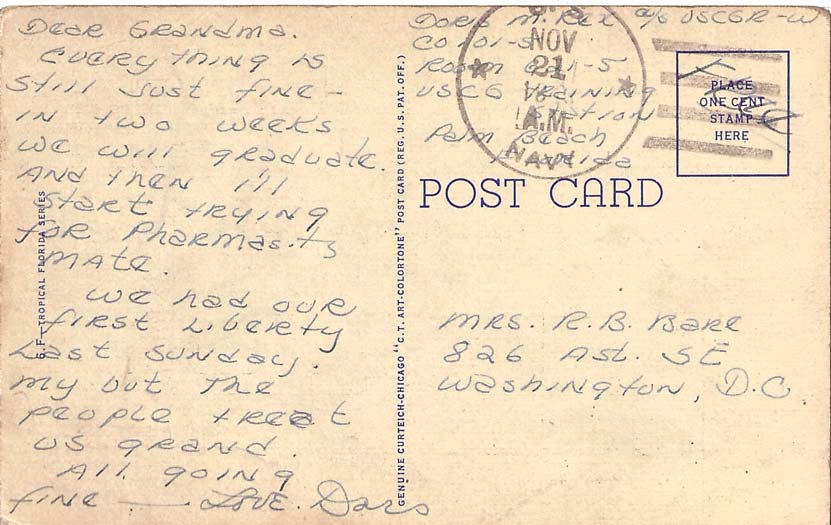 Dear Grandma.
Everything is
still just fine -
in two weeks
we will graduate.
And then I'll
start trying
for Pharmasits
mate.
We had our
first Liberty
Last Sunday.
my but the
people treat
us grand.
All going
fine — Love. Doris
6.F.—TROPICAL FLORIDA SERIES
GENUINE CURTEICH-CHICAGO "C.T. ART-COLORTONE" POST CARD (REG. U.S. PAT. OFF.)
Doris M. Rex A/S USCGR-W
Co 101-S
Room 621-S
USCG Training
Station
Palm Beach
Florida
U.S.
NOV
21
A.M.
NAVY
Free
PLACE
ONE CENT
STAMP
HERE
POST CARD
Mrs. R.B. Bare
826 A St. SE
Washington, D.C